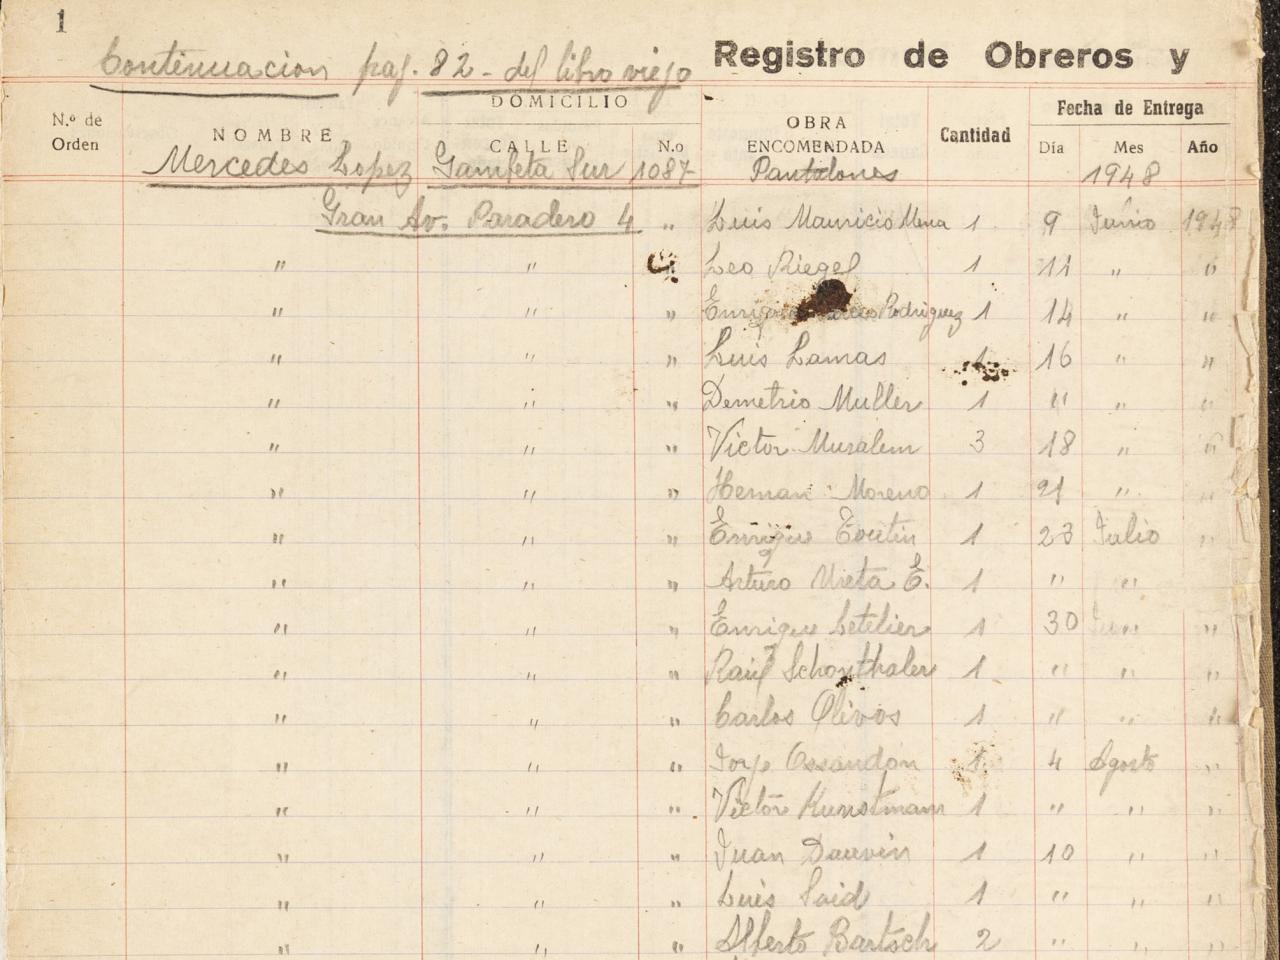 1
Continuacion pag. 82 - del libro viejo Registro de Obreros y
N.º de Orden NOMBRE DOMICILIO CALLE N.o OBRA ENCOMENDADA Cantidad Fecha de Entrega Día Mes Año
Mercedes Lopez Gambeta Sur 1087 Pantalones 1948
Gran Av. Paradero 4 " Luis Mauricio Mena 1 9 Junio 1948
" " " Leo Riegel 1 11 " "
" " " Rodriguez 1 14 " "
" " " Luis Lamas 1 16 " "
" " " Demetrio Muller 1 " " "
" " " Victor Musalem 3 18 " "
" " " Hernan Moreno 1 21 " "
" " " Enrique Toutin 1 23 Julio "
" " " Arturo Ureta E. 1 " "
" " " Enrique Letelier 1 30 " "
" " " Raúl Schonthaler 1 " " "
" " " Carlos Olivos 1 " " "
" " " Jorje Ossandon 1 4 Agosto "
" " " Victor Kunstmann 1 " " "
" " " Juan Dauvin 1 10 " "
" " " Luis Said 1 " " "
" " " Alberto Bartsch 2 " " "